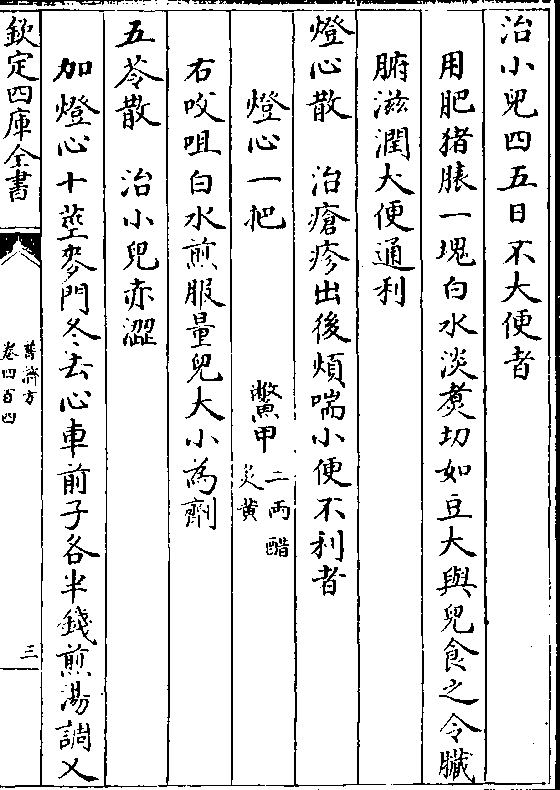 治小兒四五日不大便者
用肥猪脹一塊白水淡煑切如豆大與兒食之令臓
腑滋潤大便通利
燈心散　治瘡疹出後煩喘小便不利者
燈心一把　鱉甲二兩醋炙黄
右㕮咀白水煎服量兒大小為劑
五苓散　治小兒赤澀
加燈心十莖麥門冬去心車前子各半錢煎湯調乂
欽定四庫全書
普濟方
卷四百四
三